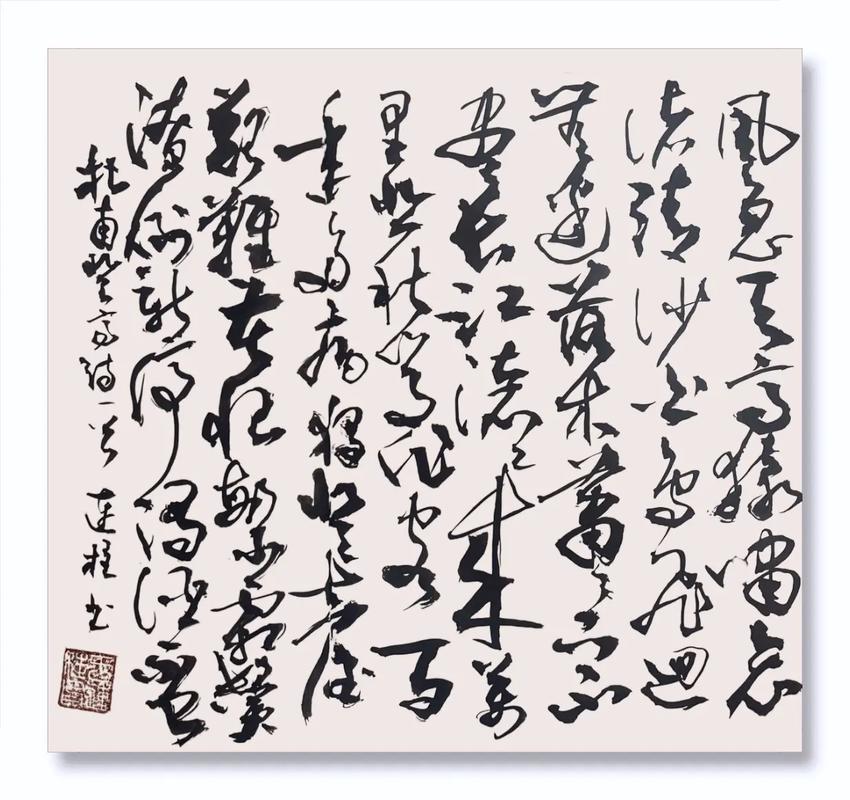 風急天高猿嘯哀
渚清沙白鳥飛迴
無邊落木蕭々下不
盡長江滾々來萬
里悲秋常作客百
年多病獨登臺
艱難苦恨繁霜鬢
潦倒新停濁酒杯
杜甫登高詩一首 連柱書